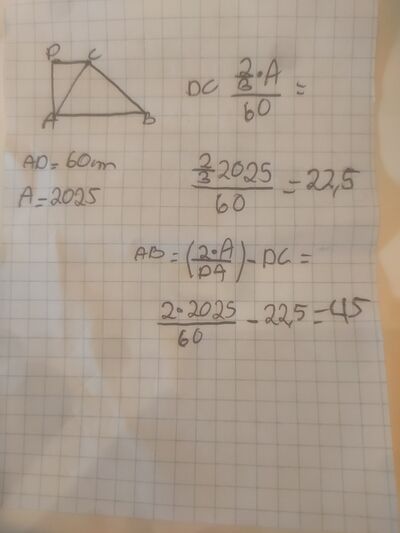 D C
A B
DC 2/3·A / 60 =
AD = 60cm
A = 2025
2/3 2025 / 60 = 22,5
AB = (2·A / DA) - DC =
2·2025 / 60 - 22,5 = 45